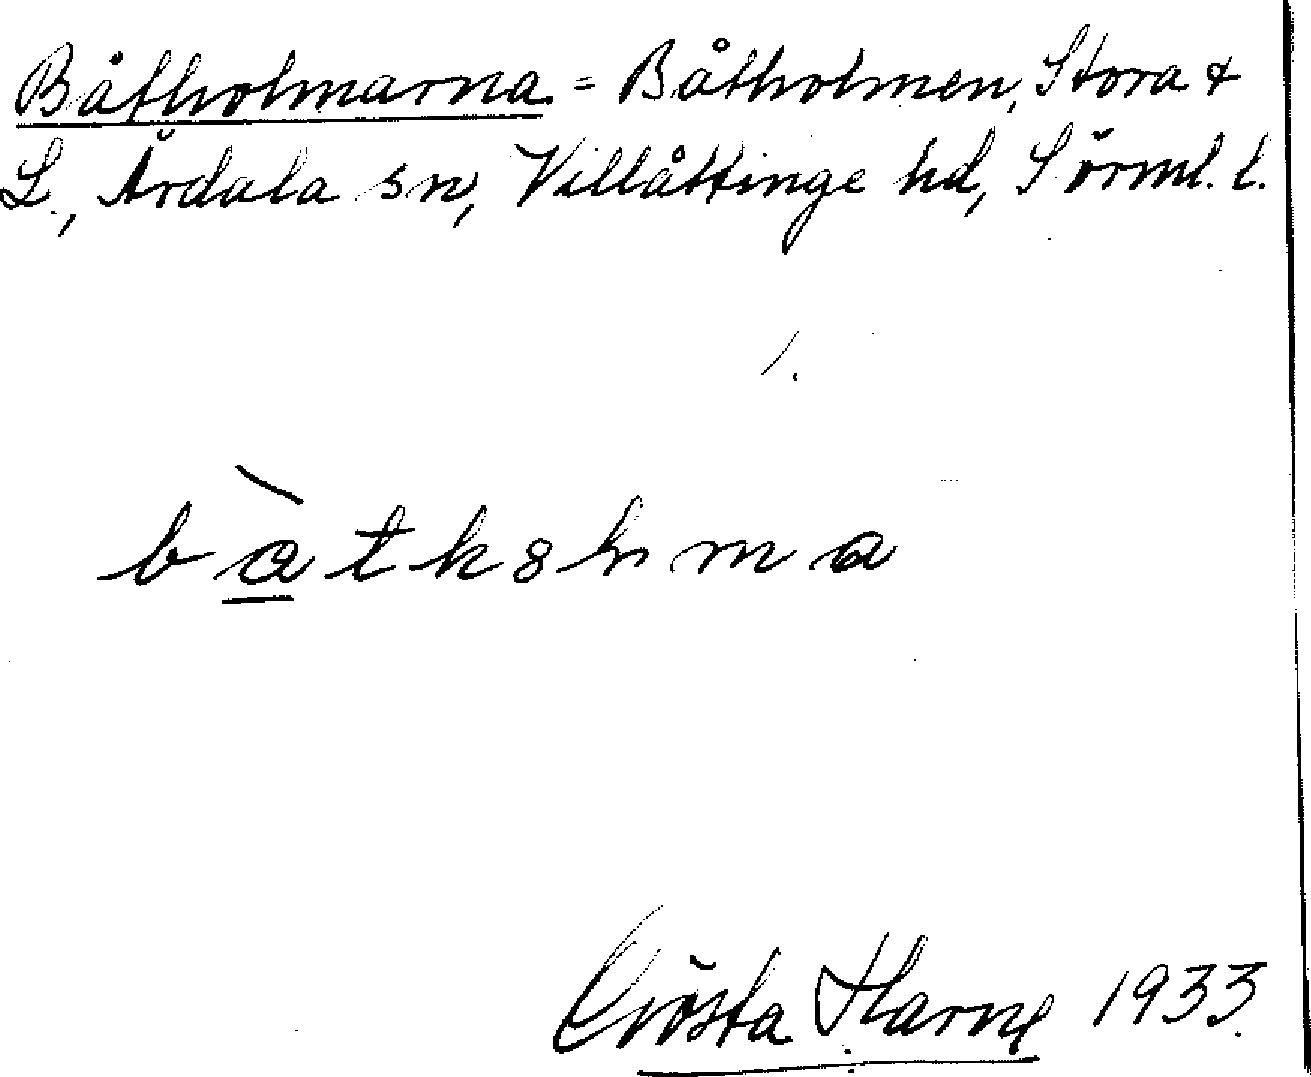 Båtholmarna = Båtholmen, Stora &
L., Årdala sn, Villåttinge hd, Sörml. l.
Gösta Harne 1933.